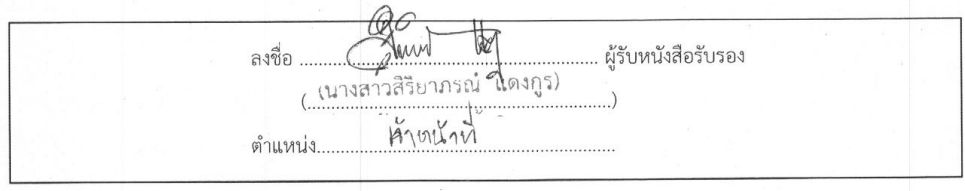 ลงชื่อ ผู้รับหนังสือรับรอง
(นางสาวสิรียาภรณ์ แดงกูร)
ตำแหน่ง เจ้าหน้าที่